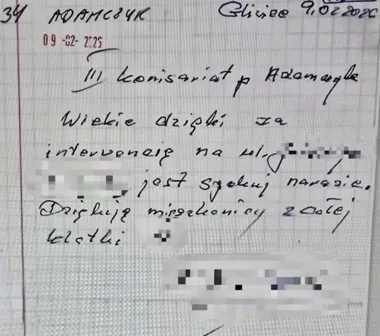 34 ADAMCZYK Gliwice 9.02.2026
09 -02- 2026
III Komisariat p Adamczyk
Wielkie dzięki za
interwencję na ul.
jest spokuj narazie.
Dziękują mieszkańcy z całej
klatki